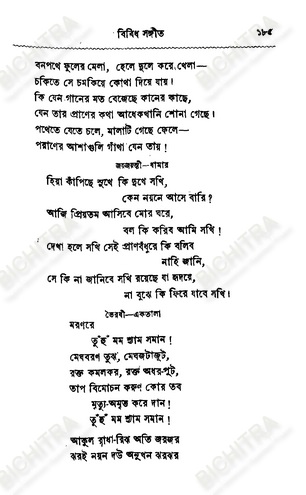 বিবিধ সঙ্গীত ১৮৫
বনপথে ফুলের মেলা, হেলে দুলে করে খেলা—
চকিতে সে চমকিয়ে কোথা দিয়ে যায়।
কি যেন গানের মত বেজেছে কানের কাছে,
যেন তার প্রাণের কথা আধেকখানি শোনা গেছে।
পথেতে যেতে চলে, মালাটি গেছে ফেলে—
পরাণের আশাগুলি গাঁথা যেন তায়!
জয়জয়ন্তী—ধামার
হিয়া কাঁপিছে সুখে কি দুখে সখি,
কেন নয়নে আসে বারি?
আজি প্রিয়তম আসিবে মোর ঘরে,
বল কি করিব আমি সখি!
দেখা হলে সখি সেই প্রাণবঁধুরে কি বলিব
নাহি জানি,
সে কি না জানিবে সখি রয়েছে যা হৃদয়ে,
না বুঝে কি ফিরে যাবে সখি।
ভৈরবী—একতালা
মরণরে
তুঁহুঁ মম শ্যাম সমান!
মেঘবরণ তুঝ, মেঘজটাজূট,
রক্ত কমলকর, রক্ত অধর-পুট,
তাপ বিমোচন করুণ কোর তব
মৃত্যু-অমৃত করে দান!
তুঁহুঁ মম শ্যাম সমান!
আকুল রাধা-রিঝ অতি জরজর
ঝরই নয়ন দউ অনুখন ঝরঝর
BICHITRA